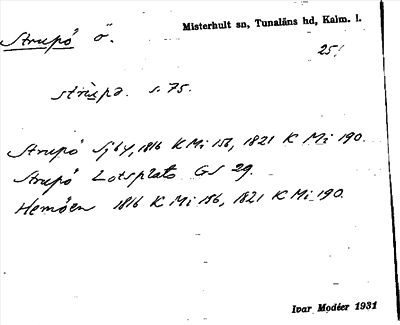 Strupö ö.
Misterhult sn, Tunaläns hd, Kalm. l.
25!
strùpə. s. 75.
Strupö Sjöby, 1816 K Mi 156, 1821 K Mi 190.
Strupö Lotsplats GS 29.
Hemöen 1816 K Mi 156, 1821 K Mi 190.
Ivar Modéer 1931